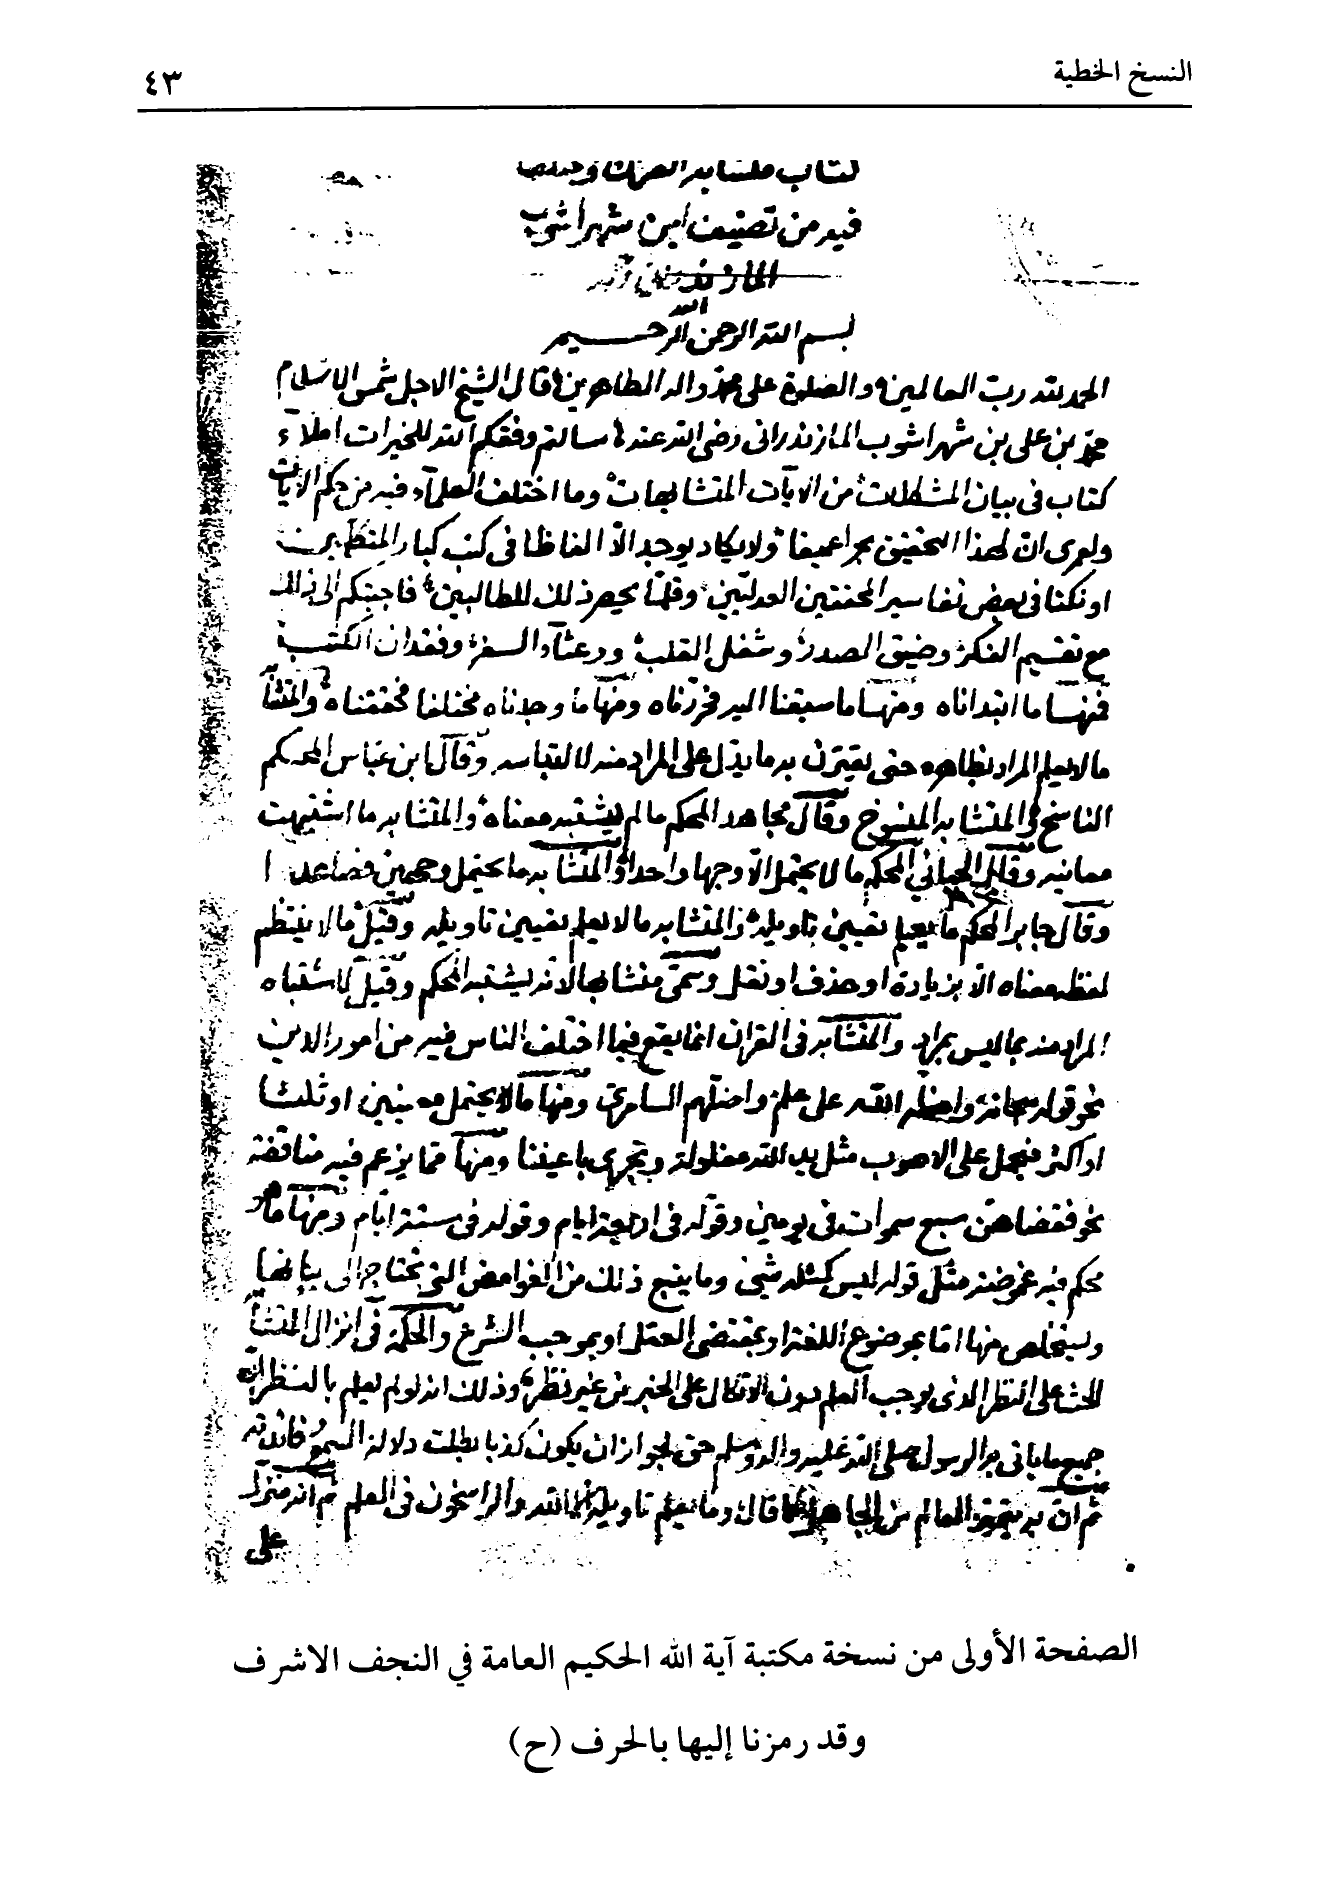 النسخ الخطية
٤٣
كتاب متشابه القرآن
فيه من تصنيف ابن شهراشوب
المازندراني
بسم الله الرحمن الرحيم
الحمد لله رب العالمين والصلوة على محمد واله الطاهرين قال الشيخ الاجل شمس الاسلام
محمد بن على بن شهراشوب المازندرانى رضى الله عنه سالتم وفقكم الله للخيرات املاء
كتاب فى بيان المشكلات من الايات المتشابهات وما اختلف العلماء فيه من حكم الايات
ولعمرى ان لهذا التحقيق بحرا عميقا ولا يكاد يوجد الا الفاظا فى كتب كبار المتكلمين
او نكتا فى بعض تفاسير المحققين العدليين وقلما يحصر ذلك للطالبين فاجبتكم الى ذلك
مع تقسيم الفكر وضيق الصدر وشغل القلب ووعثاء السفر وفقدان الكتب
فمنها ما ابتداناه ومنها ما سبقنا اليه فحررناه ومنها ما وجدناه مختلفا فحققناه والمتشابه
ما لا يعلم المراد بظاهره حتى يقترن به ما يدل على المراد منه لالتباسه وقال ابن عباس المحكم
الناسخ والمتشابه المنسوخ وقال مجاهد المحكم ما لم يشتبه معناه والمتشابه ما اشتبهت
معانيه وقال الجبائي المحكم ما لا يحتمل الا وجها واحدا والمتشابه ما يحتمل وجهين فصاعدا
وقال جابر المحكم ما يعلم تعيين تاويله والمتشابه ما لا يعلم تعيين تاويله وقيل ما لا ينتظم
لفظه معناه الا بزيادة او حذف او نقل وسمى متشابها لانه يشتبه المحكم وقيل لاشتباه
المراد منه بما ليس بمراد والمتشابه فى القران انما يقع فيما اختلف الناس فيه من امور الدين
نحو قوله سبحانه واضله الله على علم واضلهم السامرى ومنها ما لا يحتمل معنيين او ثلثا
او اكثر فيحمل على الاصوب مثل يد الله مغلولة وتجرى باعيننا ومنها مما يزعم فيه مناقضة
نحو فقضاهن سبع سموات فى يومين وقوله فى اربعة ايام وقوله فى ستة ايام ومنها ما هو
محكم فيه غموضة مثل قوله ليس كمثله شىء وما ينبع ذلك من الغوامض التى تحتاج الى بيانها
ويستخلص منها اما بموضوع اللغة او بمقتضى العقل او بموجب الشرع والحكمة فى انزال المتشابه
الحث على النظر الذى يوجب العلم دون الاتكال على الخبر من غير نظر وذلك انه لو لم يعلم بالنظر ان
جميع ما ياتى به الرسول صلى الله عليه واله وسلم حق لجوز ان يكون كذبا بطلت دلالة السمع وفائدته
ثم ان به يتميز العالم من الجاهل كما قال وما يعلم تاويله الا الله والراسخون فى العلم ثم انه منزل
على
الصفحة الأولى من نسخة مكتبة آية الله الحكيم العامة في النجف الاشرف
وقد رمزنا إليها بالحرف (ح)